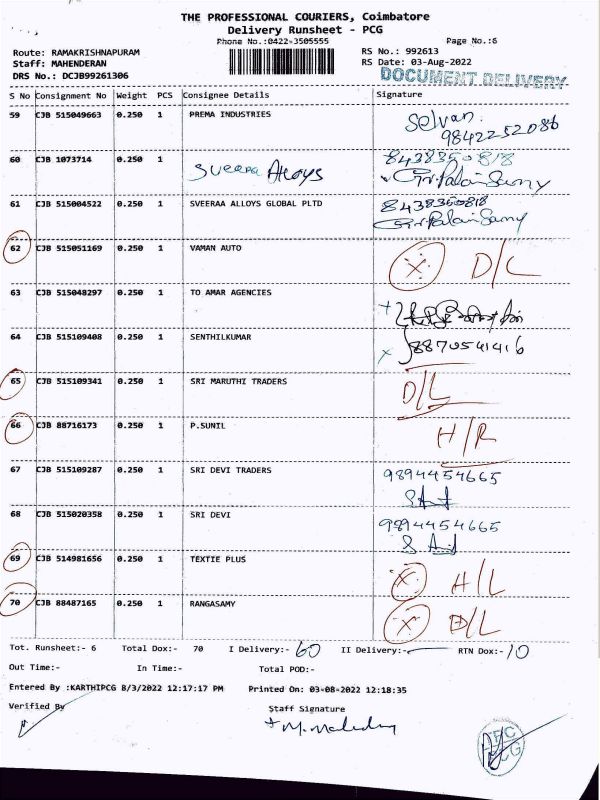 THE PROFESSIONAL COURIERS, Coimbatore
Delivery Runsheet - PCG
Phone No.:0422-3505555
Page No.:6
Route: RAMAKRISHNAPURAM
RS No.: 992613
Staff: MAHENDERAN
RS Date: 03-Aug-2022
DRS No.: DCJB99261306
DOCUMENT DELIVERY
S No Consignment No Weight PCS Consignee Details Signature
59 CJB 515049663 0.250 1 PREMA INDUSTRIES Selvan.
9842252086
60 CJB 1073714 0.250 1 Sveera Alloys 8438350818
61 CJB 515004522 0.250 1 SVEERAA ALLOYS GLOBAL PLTD 8438350818
62 CJB 515051169 0.250 1 VAMAN AUTO X D/L
63 CJB 515048297 0.250 1 TO AMAR AGENCIES
64 CJB 515109408 0.250 1 SENTHILKUMAR 8870541416
65 CJB 515109341 0.250 1 SRI MARUTHI TRADERS D/L
66 CJB 88716173 0.250 1 P.SUNIL H/R
67 CJB 515109287 0.250 1 SRI DEVI TRADERS 9894454665
68 CJB 515020358 0.250 1 SRI DEVI 9894454665
69 CJB 514981656 0.250 1 TEXTIE PLUS X H/L
70 CJB 88487165 0.250 1 RANGASAMY X D/L
Tot. Runsheet:- 6 Total Dox:- 70 I Delivery:- 60 II Delivery:- RTN Dox:- 10
Out Time:- In Time:- Total POD:-
Entered By :KARTHIPCG 8/3/2022 12:17:17 PM Printed On: 03-08-2022 12:18:35
Verified By Staff Signature